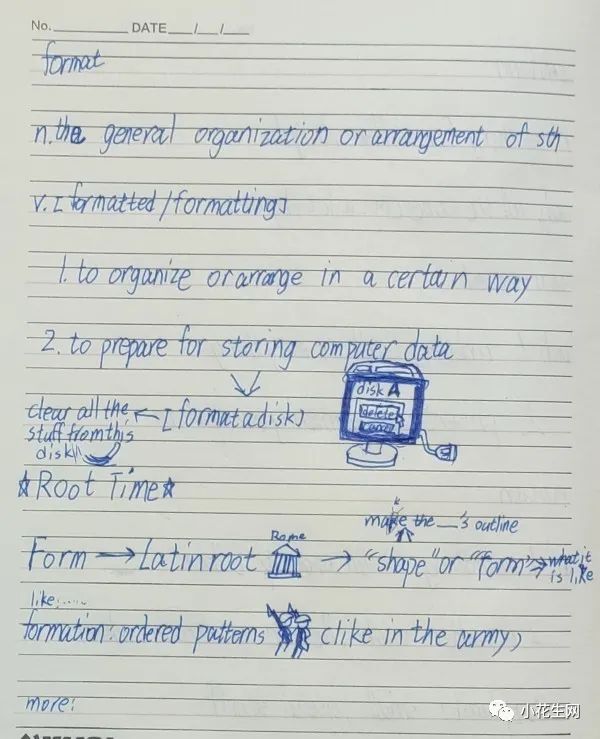 No. DATE / /
format
n. the general organization or arrangement of sth
v. [formatted/formatting]
1. to organize or arrange in a certain way
2. to prepare for storing computer data
disk A
delete
clear all the ← [format a disk]
stuff from this
disk!!
☆Root Time☆
make the __'s outline
Rome
Form → Latin root → "shape" or "form" → what it
is like
like:......
formation: ordered patterns (like in the army)
more:
小花生网